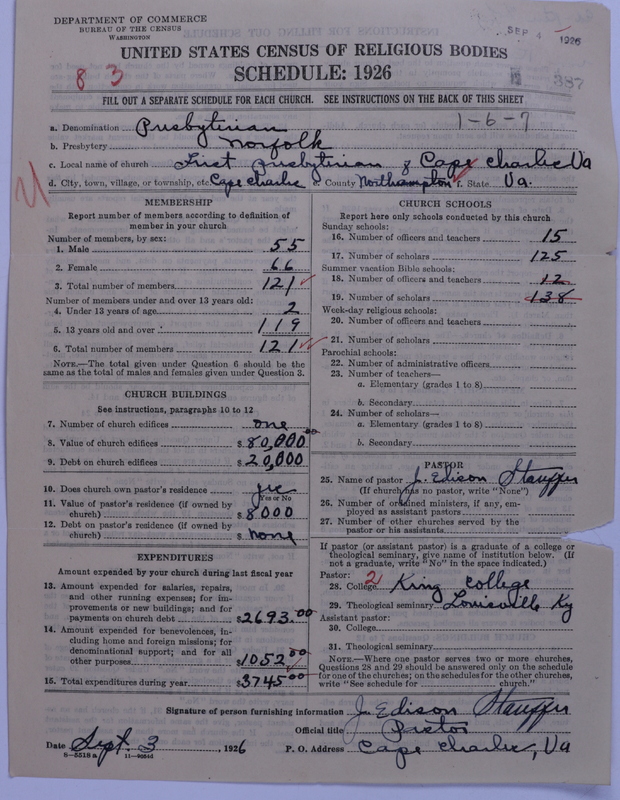 DEPARTMENT OF COMMERCE
BUREAU OF THE CENSUS
WASHINGTON
SEP 4 1926
UNITED STATES CENSUS OF RELIGIOUS BODIES
8 3 SCHEDULE: 1926
387
FILL OUT A SEPARATE SCHEDULE FOR EACH CHURCH. SEE INSTRUCTIONS ON THE BACK OF THIS SHEET
1-6-7
a. Denomination Presbyterian
b. Presbytery Norfolk
c. Local name of church First Presbyterian of Cape Charles Va
d. City, town, village, or township, etc. Cape Charles e. County Northampton f. State Va.
MEMBERSHIP
Report number of members according to definition of
member in your church
Number of members, by sex:
1. Male 55
2. Female 66
3. Total number of members 121
Number of members under and over 13 years old:
4. Under 13 years of age 2
5. 13 years old and over 119
6. Total number of members 121
NOTE.—The total given under Question 6 should be the
same as the total of males and females given under Question 3.
CHURCH BUILDINGS
See instructions, paragraphs 10 to 12
7. Number of church edifices one
8. Value of church edifices $ 80,000.00
9. Debt on church edifices $ 20,000
10. Does church own pastor's residence yes
Yes or No
11. Value of pastor's residence (if owned by
church) $ 8000
12. Debt on pastor's residence (if owned by
church) $ None
EXPENDITURES
Amount expended by your church during last fiscal year
13. Amount expended for salaries, repairs,
and other running expenses; for im-
provements or new buildings; and for
payments on church debt $ 2693.00
14. Amount expended for benevolences, in-
cluding home and foreign missions; for
denominational support; and for all
other purposes $ 1052.00
15. Total expenditures during year $ 3745.00
CHURCH SCHOOLS
Report here only schools conducted by this church
Sunday schools:
16. Number of officers and teachers 15
17. Number of scholars 125
Summer vacation Bible schools:
18. Number of officers and teachers 12
19. Number of scholars 138
Week-day religious schools:
20. Number of officers and teachers
21. Number of scholars
Parochial schools:
22. Number of administrative officers
23. Number of teachers—
a. Elementary (grades 1 to 8)
b. Secondary
24. Number of scholars—
a. Elementary (grades 1 to 8)
b. Secondary
PASTOR
25. Name of pastor J. Edison Stauffer
(If church has no pastor, write "None")
26. Number of ordained ministers, if any, em-
ployed as assistant pastors
27. Number of other churches served by the
pastor or his assistants
If pastor (or assistant pastor) is a graduate of a college or
theological seminary, give name of institution below. (If
not a graduate, write "No" in the space indicated.)
Pastor:
28. College 2 King College
29. Theological seminary Louisville Ky
Assistant pastor:
30. College
31. Theological seminary
NOTE.—Where one pastor serves two or more churches,
Questions 28 and 29 should be answered only on the schedule
for one of the churches; on the schedules for the other churches,
write "See schedule for ____ church."
Signature of person furnishing information J. Edison Stauffer
Official title Pastor
Date Sept. 3, 1926 P. O. Address Cape Charles, Va
8-5518a 11-9554d